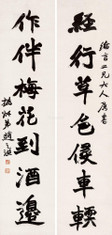 二兄大人屬書
經行芳草侵車
作伴梅花到酒邊
撝叔弟趙之謙